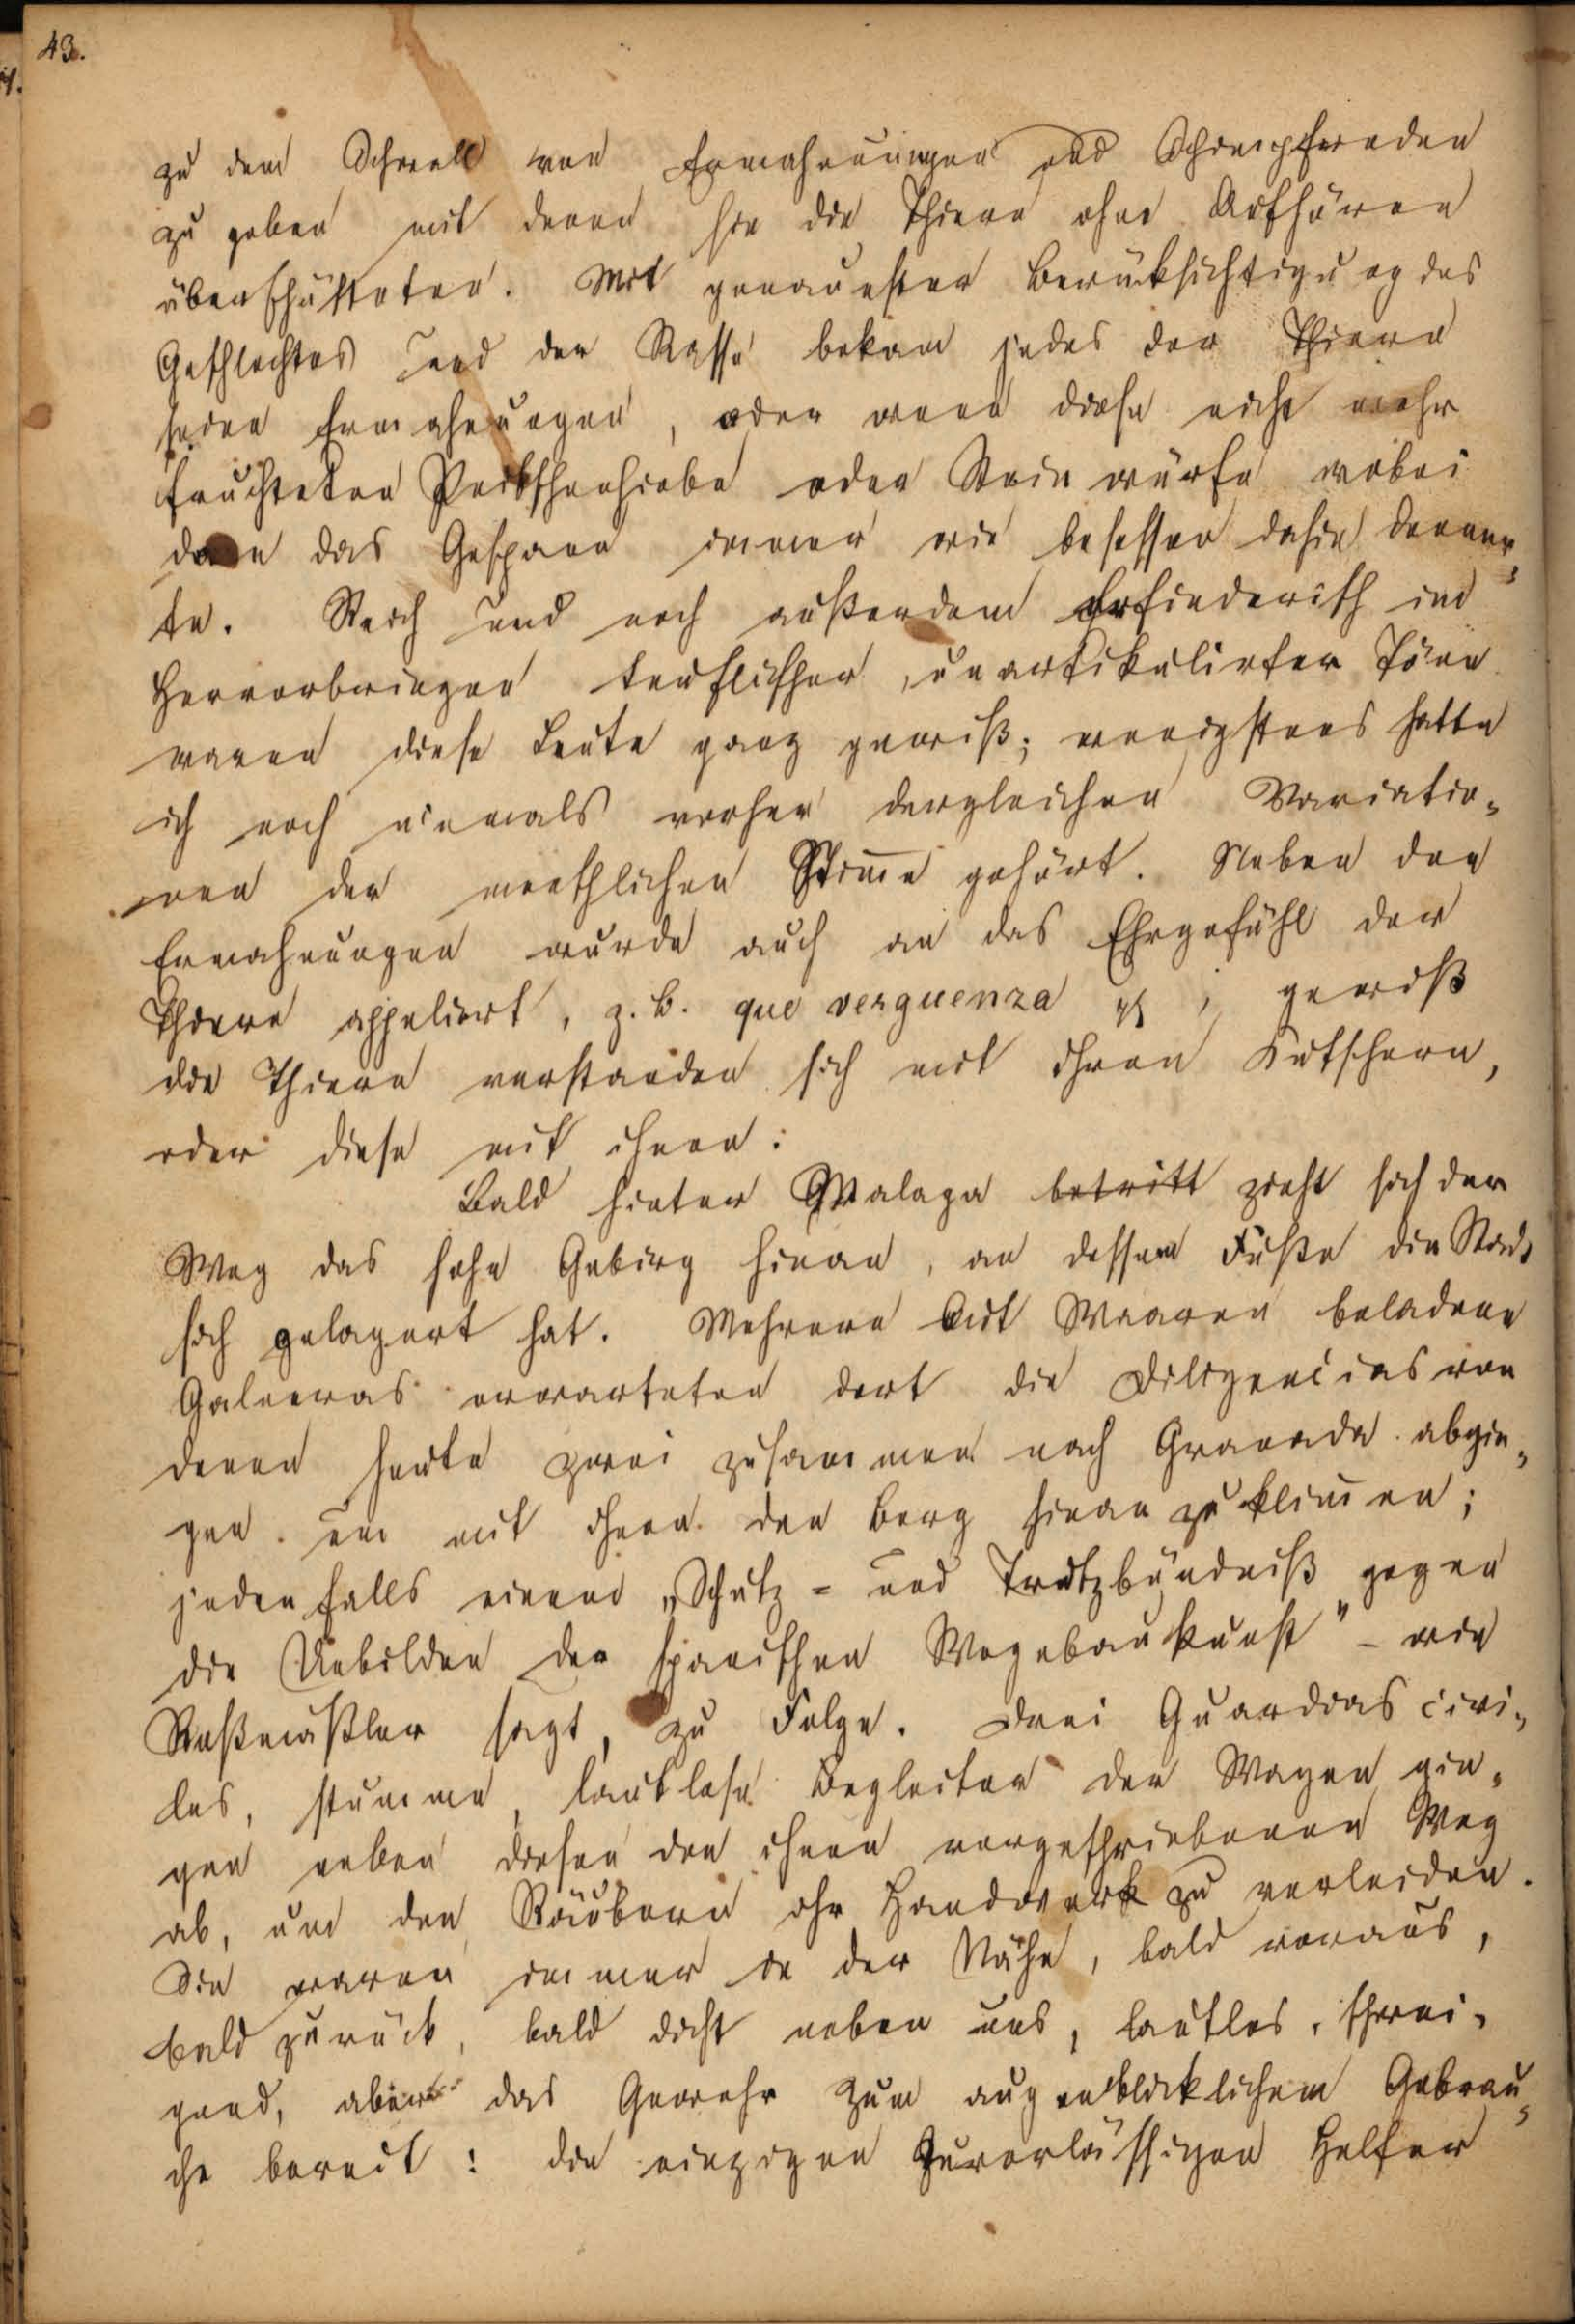 43.
zu dem Schwall von Ermahnungen und Schimpfreden
zu geben mit denen sie die Thiere ohne Aufhören
überschütteten. Mit genauester Berüksichtigung des
Geschlechtes und der Rasse bekam jedes der Thiere
seine Ermahnungen, oder wenn diese nicht mehr
fruchteten Peitschenhiebe oder Steinwürfe wobei
dann das Gespann immer wie besessen dahin donner„
te. Reich und noch außerdem erfinderisch im
Hervorbringen teuflischer, unartikulirter Töne
waren diese Leute ganz gewiß; wenigstens hatte
ich noch niemals vorher dergleichen Variatio„
nen der menschlichen Stim̅e gehört. Neben den
Ermahnungen wurde auch an das Ehrgefühl der
Thiere appelirt, z. B. que verguenza ; gewiß
die Thiere verstanden sich mit ihren Kutschern,
oder diese mit ihnen:
Bald hinter Malaga betritt zieht sich der
Weg das hohe Gebirg hinan, an dessem Fuße die Stadt
sich gelagert hat. Mehrere mit Waaren beladene
Galeeras erwarteten dort die Diligencias von
denen heute zwei zusammen nach Granada abgin„
gen um mit ihnen den Berg hinan zu klim̅en;
jedenfalls einem „Schutz = und Trutzbündniß gegen
die Unbilden der spanischen Wegebaukunst" – wie
Roßmäßler sagt, zu Folge. Drei Guardias civi„
les, stumme, lautlose Begleiter der Wagen gin„
gen neben diesen den ihnen vorgeschriebenen Weg
ab, um den Räubern ihr Handwerk zu verleiden.
Sie waren immer in der Nähe, bald voraus,
bald zurück, bald dicht neben uns, lautlos, schwei„
gend, aber das Gewehr zum augenblicklichem Gebrau„
che bereit: die einzigen zuverlässigen Helfer